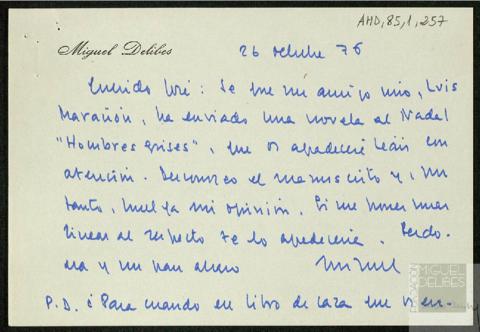 AMD,85,1,257
Miguel Delibes
26 octubre 76
Querido José: Sé que mi amigo mío, Luis
Marañón, ha enviado una novela al Nadal
"Hombres grises", que os agradeceré leáis con
atención. Desconozco el manuscrito y, por
tanto, huelga mi opinión. Si me pones unas
líneas al respecto te lo agradecería. Perdo-
na y un gran abrazo
Miguel
P.D. ¿Para cuando un libro de caza que os en-
FUNDACIÓN
MIGUEL
DELIBES